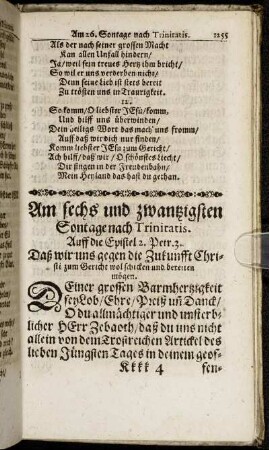 Am 26. Sontage nach Trinitatis. 1255
Als der nach seiner grossen Macht
Kan allen Unfall hindern/
Ja/weil sein treues Hertz ihm bricht/
So wil er uns verderben nicht/
Denn seine Lieb ist stets bereit
Zu trösten uns in Traurigkeit.
12.
So komm/O liebster JEsu/komm/
Und hilff uns überwinden/
Dein heiligs Wort das mach uns fromm/
Auff daß wir dich nur finden/
Komm liebster JEsu zum Gericht/
Ach hilff/daß wir/O schönstes Liecht/
Dir singen in der Freudenbahn/
Mein Heyland das hast du gethan.
Am sechs und zwantzigsten
Sontage nach Trinitatis.
Auff die Epistel 2. Petr. 3.
Daß wir uns gegen die Zukunfft Chri-
sti zum Gericht wol schicken und bereiten
mögen.
DEiner grossen Barmhertzigkeit
sey Lob/Ehre/Preiß uñ Danck/
O du allmächtiger und unsterb-
licher HErr Zebaoth/daß du uns nicht
allein von dem Trostreichen Artickel des
lieben Jüngsten Tages in deinem geof-
Kkkk 4 fen-